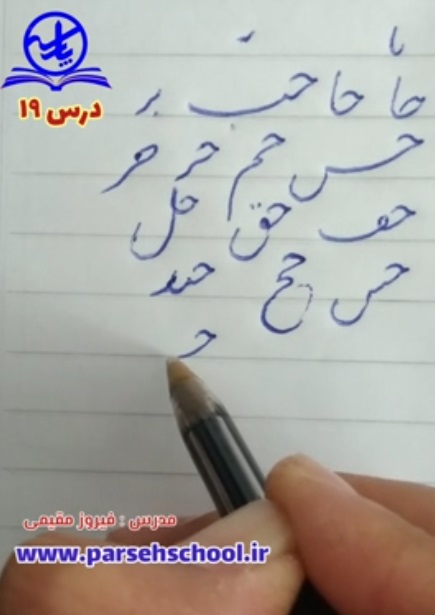 درس ۱۹
حا حا حب بر
حس حم حر هر
حف حق حل
حس حح حد
حـ
مدرس : فیروز مقیمی
www.parsehschool.ir